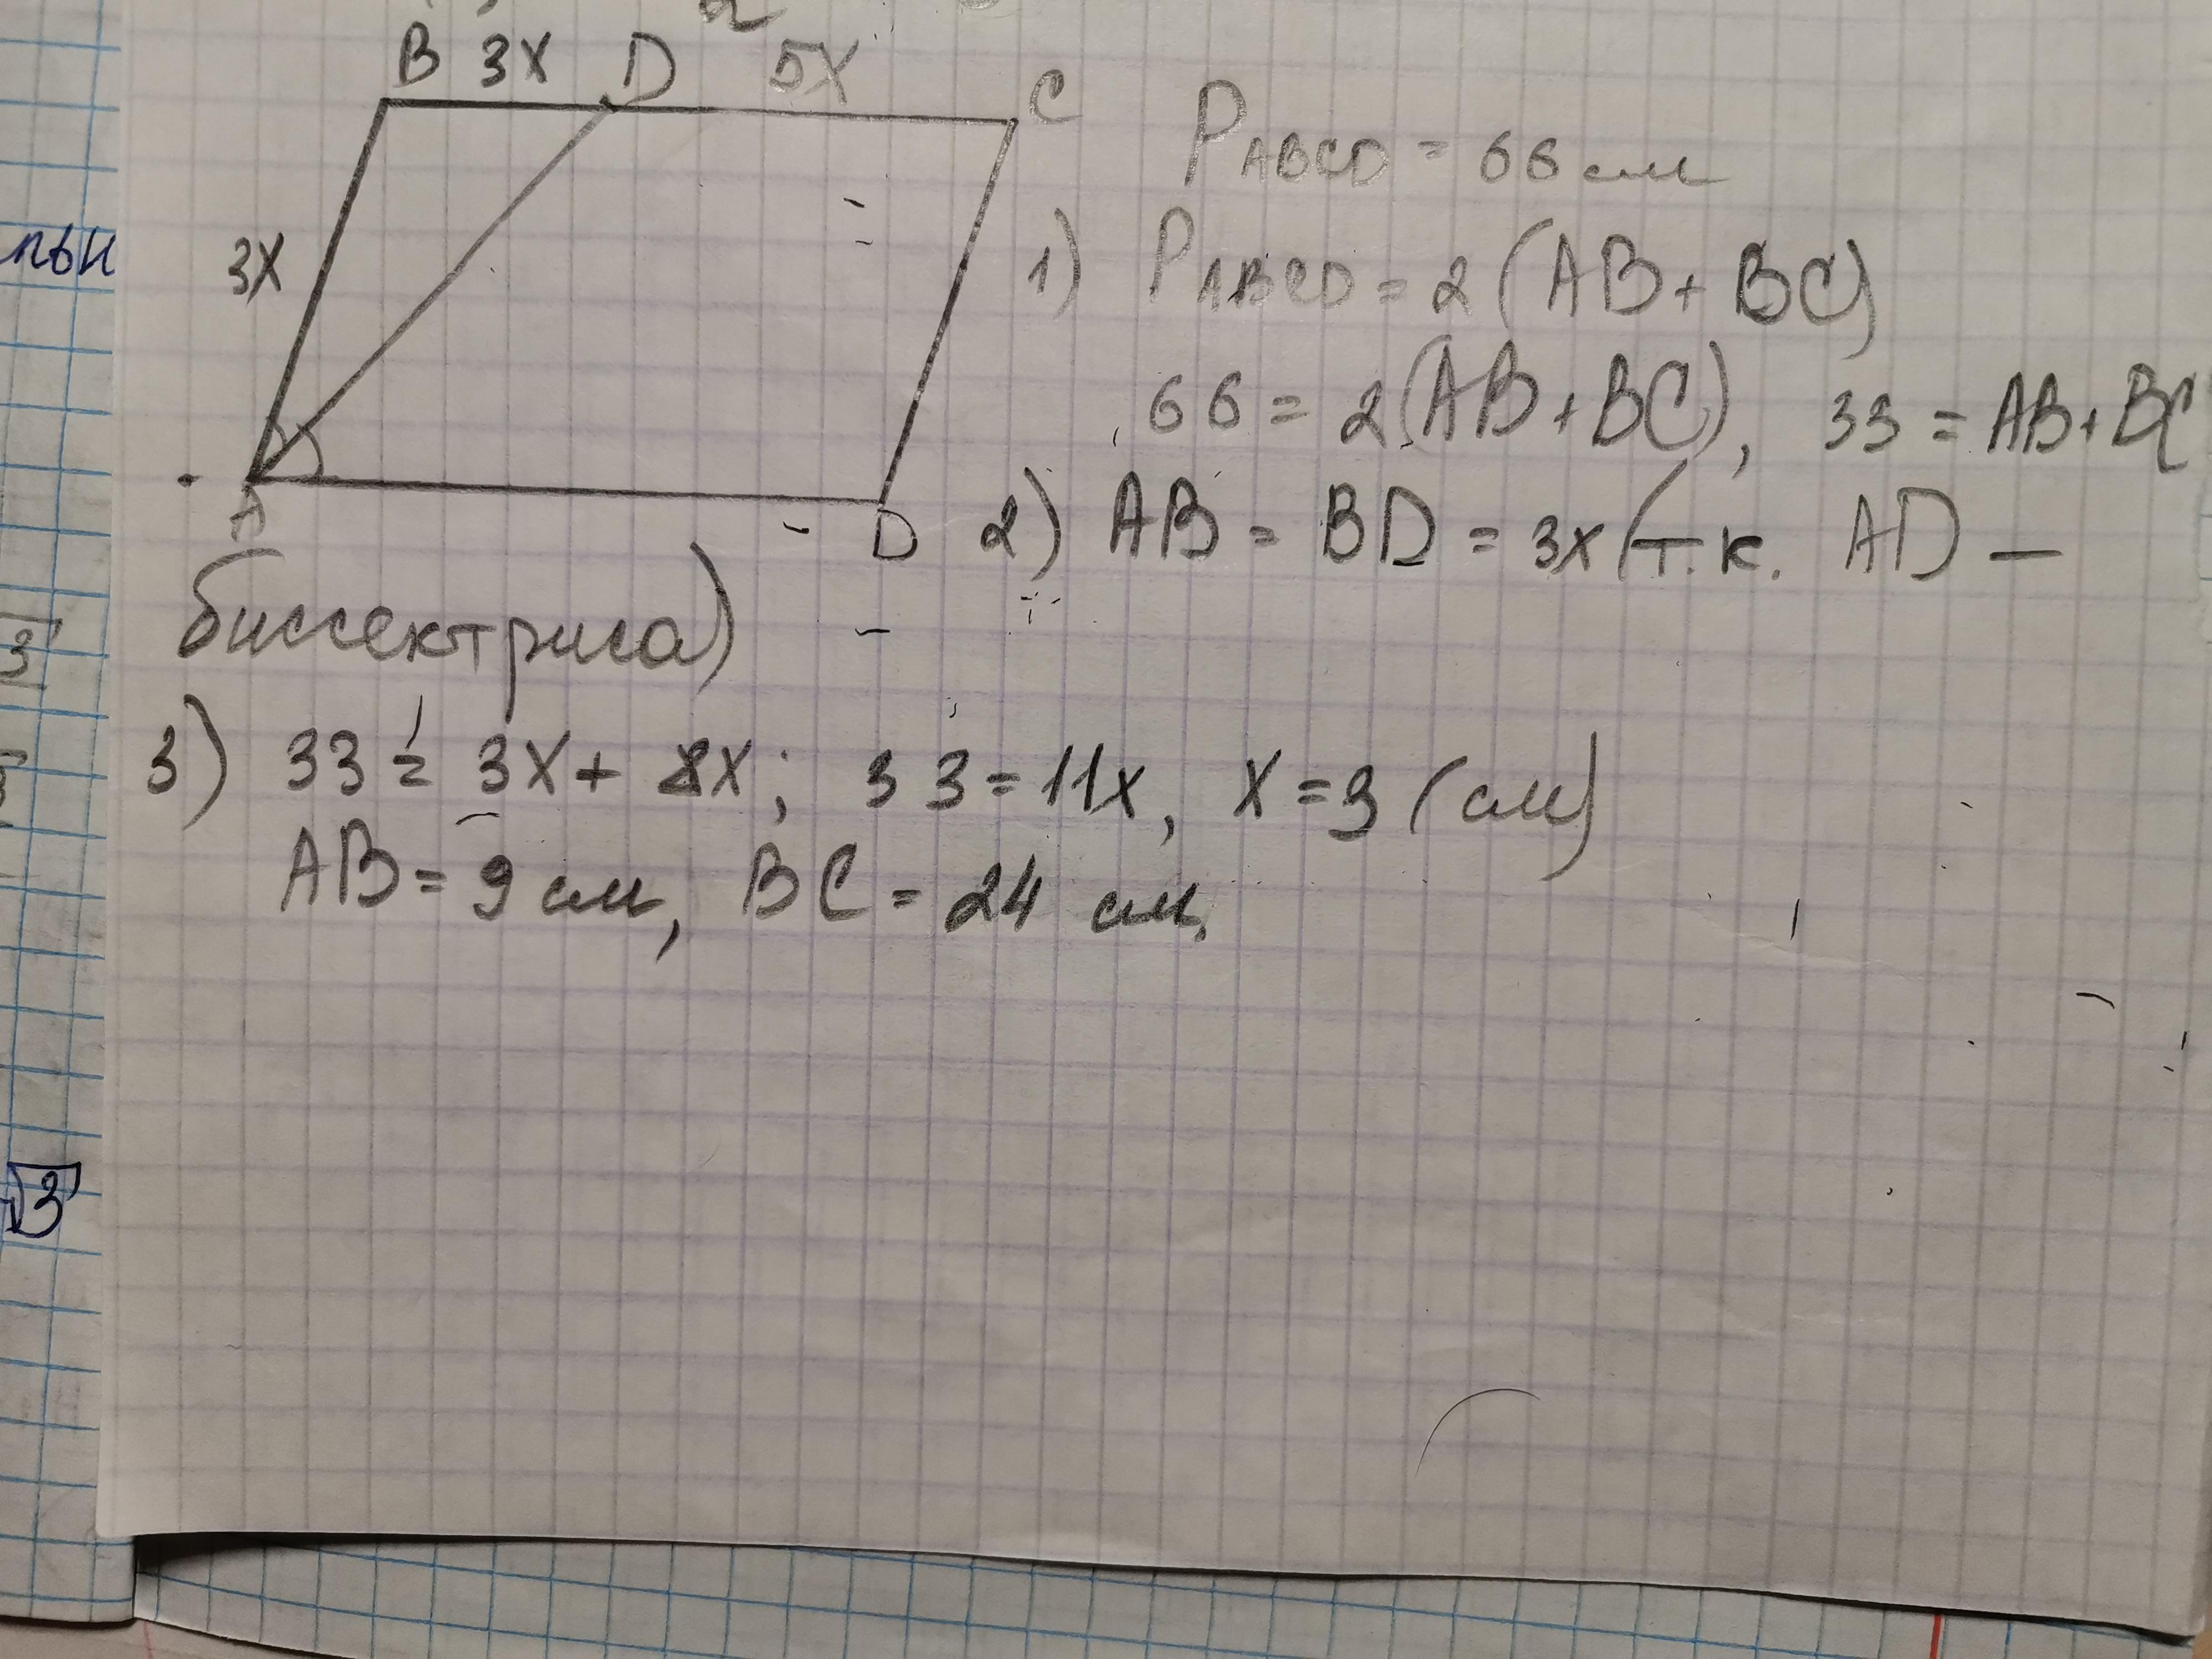 2
B 3x D 5x C
P ABCD = 66 см
льн
3x
1) P ABCD = 2 (AB + BC)
66 = 2(AB + BC), 33 = AB + BC
A D
2) AB = BD = 3x (т.к. AD —
биссектриса)
3) 33 = 3x + 8x; 33 = 11x, x = 3 (см)
AB = 9 см, BC = 24 см.
3